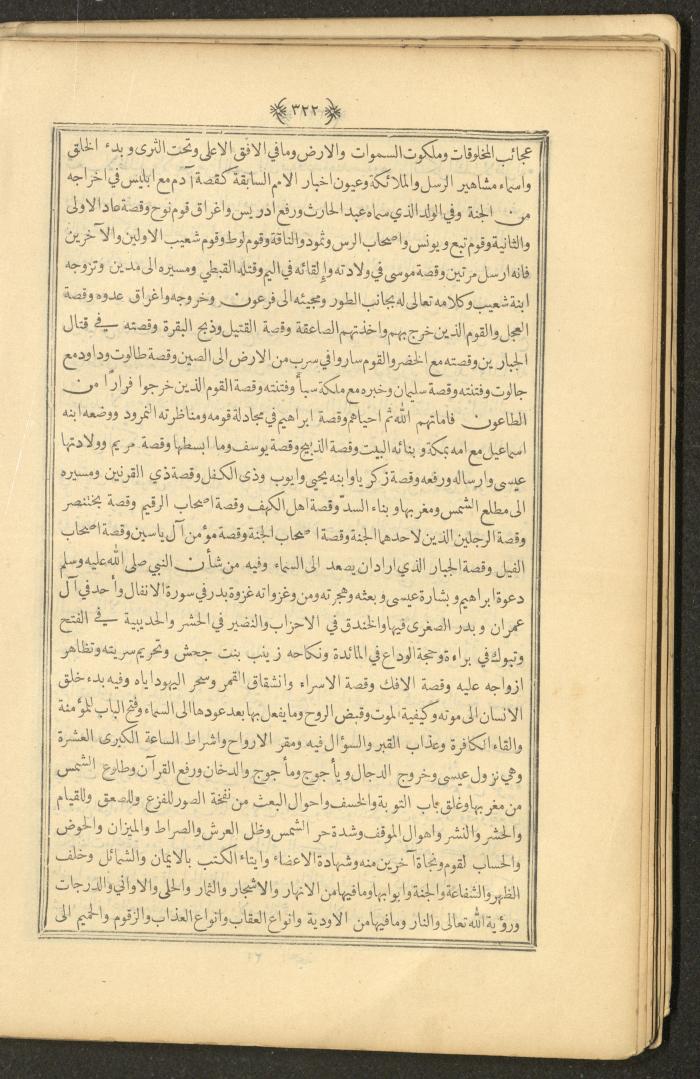 ٣٢٢
عجائب المخلوقات وملكوت السموات والارض وما في الافق الاعلى وتحت الثرى وبدء الخلق
واسماء مشاهير الرسل والملائكة وعيون اخبار الامم السابقة كقصة آدم مع ابليس في اخراجه
من الجنة وفي الولد الذي سماه عبد الحارث ورفع ادريس واغراق قوم نوح وقصة عاد الاولى
والثانية وقوم تبع ويونس واصحاب الرس وثمود والناقة وقوم لوط وقوم شعيب الاولين والآخرين
فانه ارسل مرتين وقصة موسى في ولادته وإلقائه في اليم وقتله القبطي ومسيره الى مدين وتزوجه
ابنة شعيب وكلامه تعالى له بجانب الطور ومجيئه الى فرعون وخروجه واغراق عدوه وقصة
العجل والقوم الذين خرج بهم واخذتهم الصاعقة وقصة القتيل وذبح البقرة وقصته في قتال
الجبارين وقصته مع الخضر والقوم ساروا في سرب من الارض الى الصين وقصة طالوت وداود مع
جالوت وفتنته وقصة سليمان وخبره مع ملكة سبأ وفتنته وقصة القوم الذين خرجوا فرارًا من
الطاعون فاماتهم الله ثم احياهم وقصة ابراهيم في مجادلة قومه ومناظرته النمرود ووضعه ابنه
اسماعيل مع امه بمكة وبنائه البيت وقصة الذبيح وقصة يوسف وما ابسطها وقصة مريم وولادتها
عيسى وارساله ورفعه وقصة زكريا وابنه يحيى وايوب وذى الكفل وقصة ذي القرنين ومسيره
الى مطلع الشمس ومغربها وبناء السدّ وقصة اهل الكهف وقصة اصحاب الرقيم وقصة بختنصر
وقصة الرجلين الذين لاحدهما الجنة وقصة اصحاب الجنة وقصة مؤمن آل ياسين وقصة اصحاب
الفيل وقصة الجبار الذي اراد ان يصعد الى السماء وفيه من شأن النبي صلى الله عليه وسلم
دعوة ابراهيم وبشارة عيسى وبعثه وهجرته ومن غزواته غزوة بدر في سورة الانفال وأحد في آل
عمران وبدر الصغرى فيها والخندق في الاحزاب والنضير في الحشر والحديبية في الفتح
وتبوك في براءة وحجة الوداع في المائدة ونكاحه زينب بنت جحش وتحريم سريته وتظاهر
ازواجه عليه وقصة الافك وقصة الاسراء وانشقاق القمر وسحر اليهود اياه وفيه بدء خلق
الانسان الى موته وكيفية الموت وقبض الروح وما يفعل بها بعد عودها الى السماء وفتح الباب للمؤمنة
والقاء الكافرة وعذاب القبر والسؤال فيه ومقر الارواح واشراط الساعة الكبرى العشرة
وهي نزول عيسى وخروج الدجال ويأجوج ومأجوج والدخان ورفع القرآن وطلوع الشمس
من مغربها وغلق باب التوبة والخسف واحوال البعث من نفخة الصور للفزع وللصعق وللقيام
والحشر والنشر واهوال الموقف وشدة حر الشمس وظل العرش والصراط والميزان والحوض
والحساب لقوم ونجاة آخرين منه وشهادة الاعضاء وايتاء الكتب بالايمان والشمائل وخلف
الظهر والشفاعة والجنة وابوابها وما فيها من الانهار والاشجار والثمار والحلى والاواني والدرجات
ورؤية الله تعالى والنار وما فيها من الاودية وانواع العقاب وانواع العذاب والزقوم والحميم الى